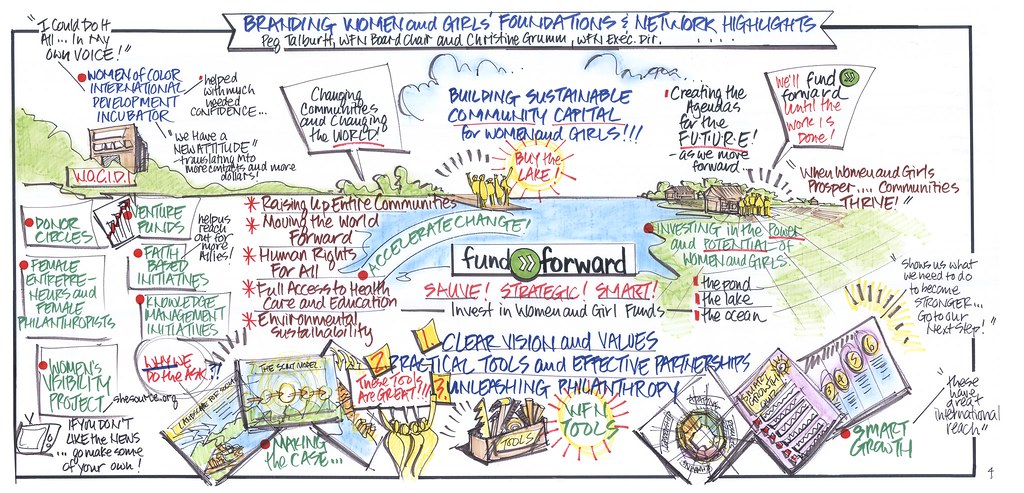 BRANDING WOMEN and GIRLS' FOUNDATIONS & NETWORK HIGHLIGHTS
Peg Talburtt, WFN Board Chair and Christine Grumm, WFN Exec. Dir. . . . .
"I Could Do It
All... in My
OWN VOICE!"
WOMEN of COLOR
INTERNATIONAL
DEVELOPMENT
INCUBATOR
helped
with much
needed
CONFIDENCE...
"We Have a
NEW ATTITUDE"
- translating into
more contacts and more
dollars!
W.O.C.I.D.I.
Changing
Communities
and Changing
the WORLD!
BUILDING SUSTAINABLE
COMMUNITY CAPITAL
for WOMEN and GIRLS!!!
BUY the
LAKE!
Creating the
Agendas
for the
FUTURE!
- as we move
forward
We'll fund
forward
until the
work is
Done!
"When Women and Girls
Prosper.... Communities
THRIVE!"
DONOR
CIRCLES
VENTURE
FUNDS
helps us
reach
out for
more
Allies!
FAITH
BASED
INITIATIVES
FEMALE
ENTREPRE-
NEURS and
FEMALE
PHILANTHROPISTS
KNOWLEDGE
MANAGEMENT
INITIATIVES
WOMEN'S
VISIBILITY
PROJECT
shesource.org
IF YOU DON'T
LIKE the NEWS
... go make some
of your own!
* Raising Up Entire Communities
* Moving the World
Forward
* Human Rights
For All
* Full Access to Health
Care and Education
* Environmental
Sustainability
ACCELERATE CHANGE!
fund forward
SAUVE! STRATEGIC! SMART!
Invest in Women and Girl Funds
INVESTING in the POWER
and POTENTIAL of
WOMEN and GIRLS
the pond
the lake
the ocean
"Shows us what
we need to do
to become
STRONGER...
Go to our
Next Step!"
1. CLEAR VISION and VALUES
2. PRACTICAL TOOLS and EFFECTIVE PARTNERSHIPS
3. UNLEASHING PHILANTHROPY
WHY WE
Do the ASK?!
MAKING
the CASE...
These Tools
Are GREAT!!!
TOOLS
WFN
TOOLS
4
5
6
SMART
GROWTH
"these
have
great
international
reach"
4